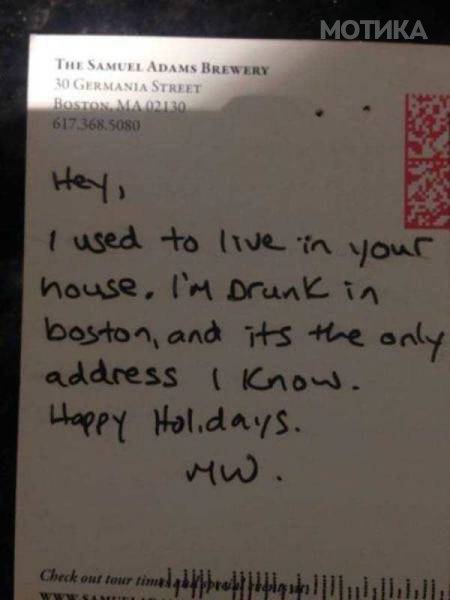 МОТИКА
THE SAMUEL ADAMS BREWERY
30 GERMANIA STREET
BOSTON, MA 02130
617.368.5080
Hey,
I used to live in your
house. I'm Drunk in
boston, and its the only
address I know.
Happy Holidays.
MW.
Check out tour times